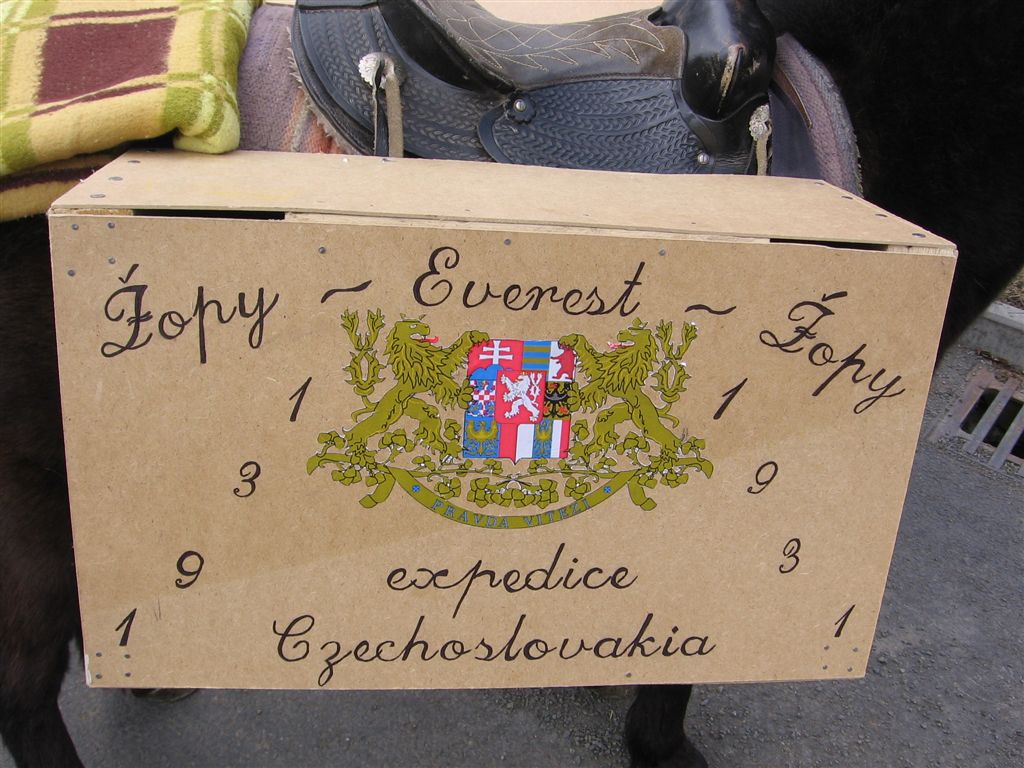 Žopy ~ Everest ~ Žopy
1 1
3 9
PRAVDA VÍTĚZÍ
9 3
expedice
1 1
Czechoslovakia